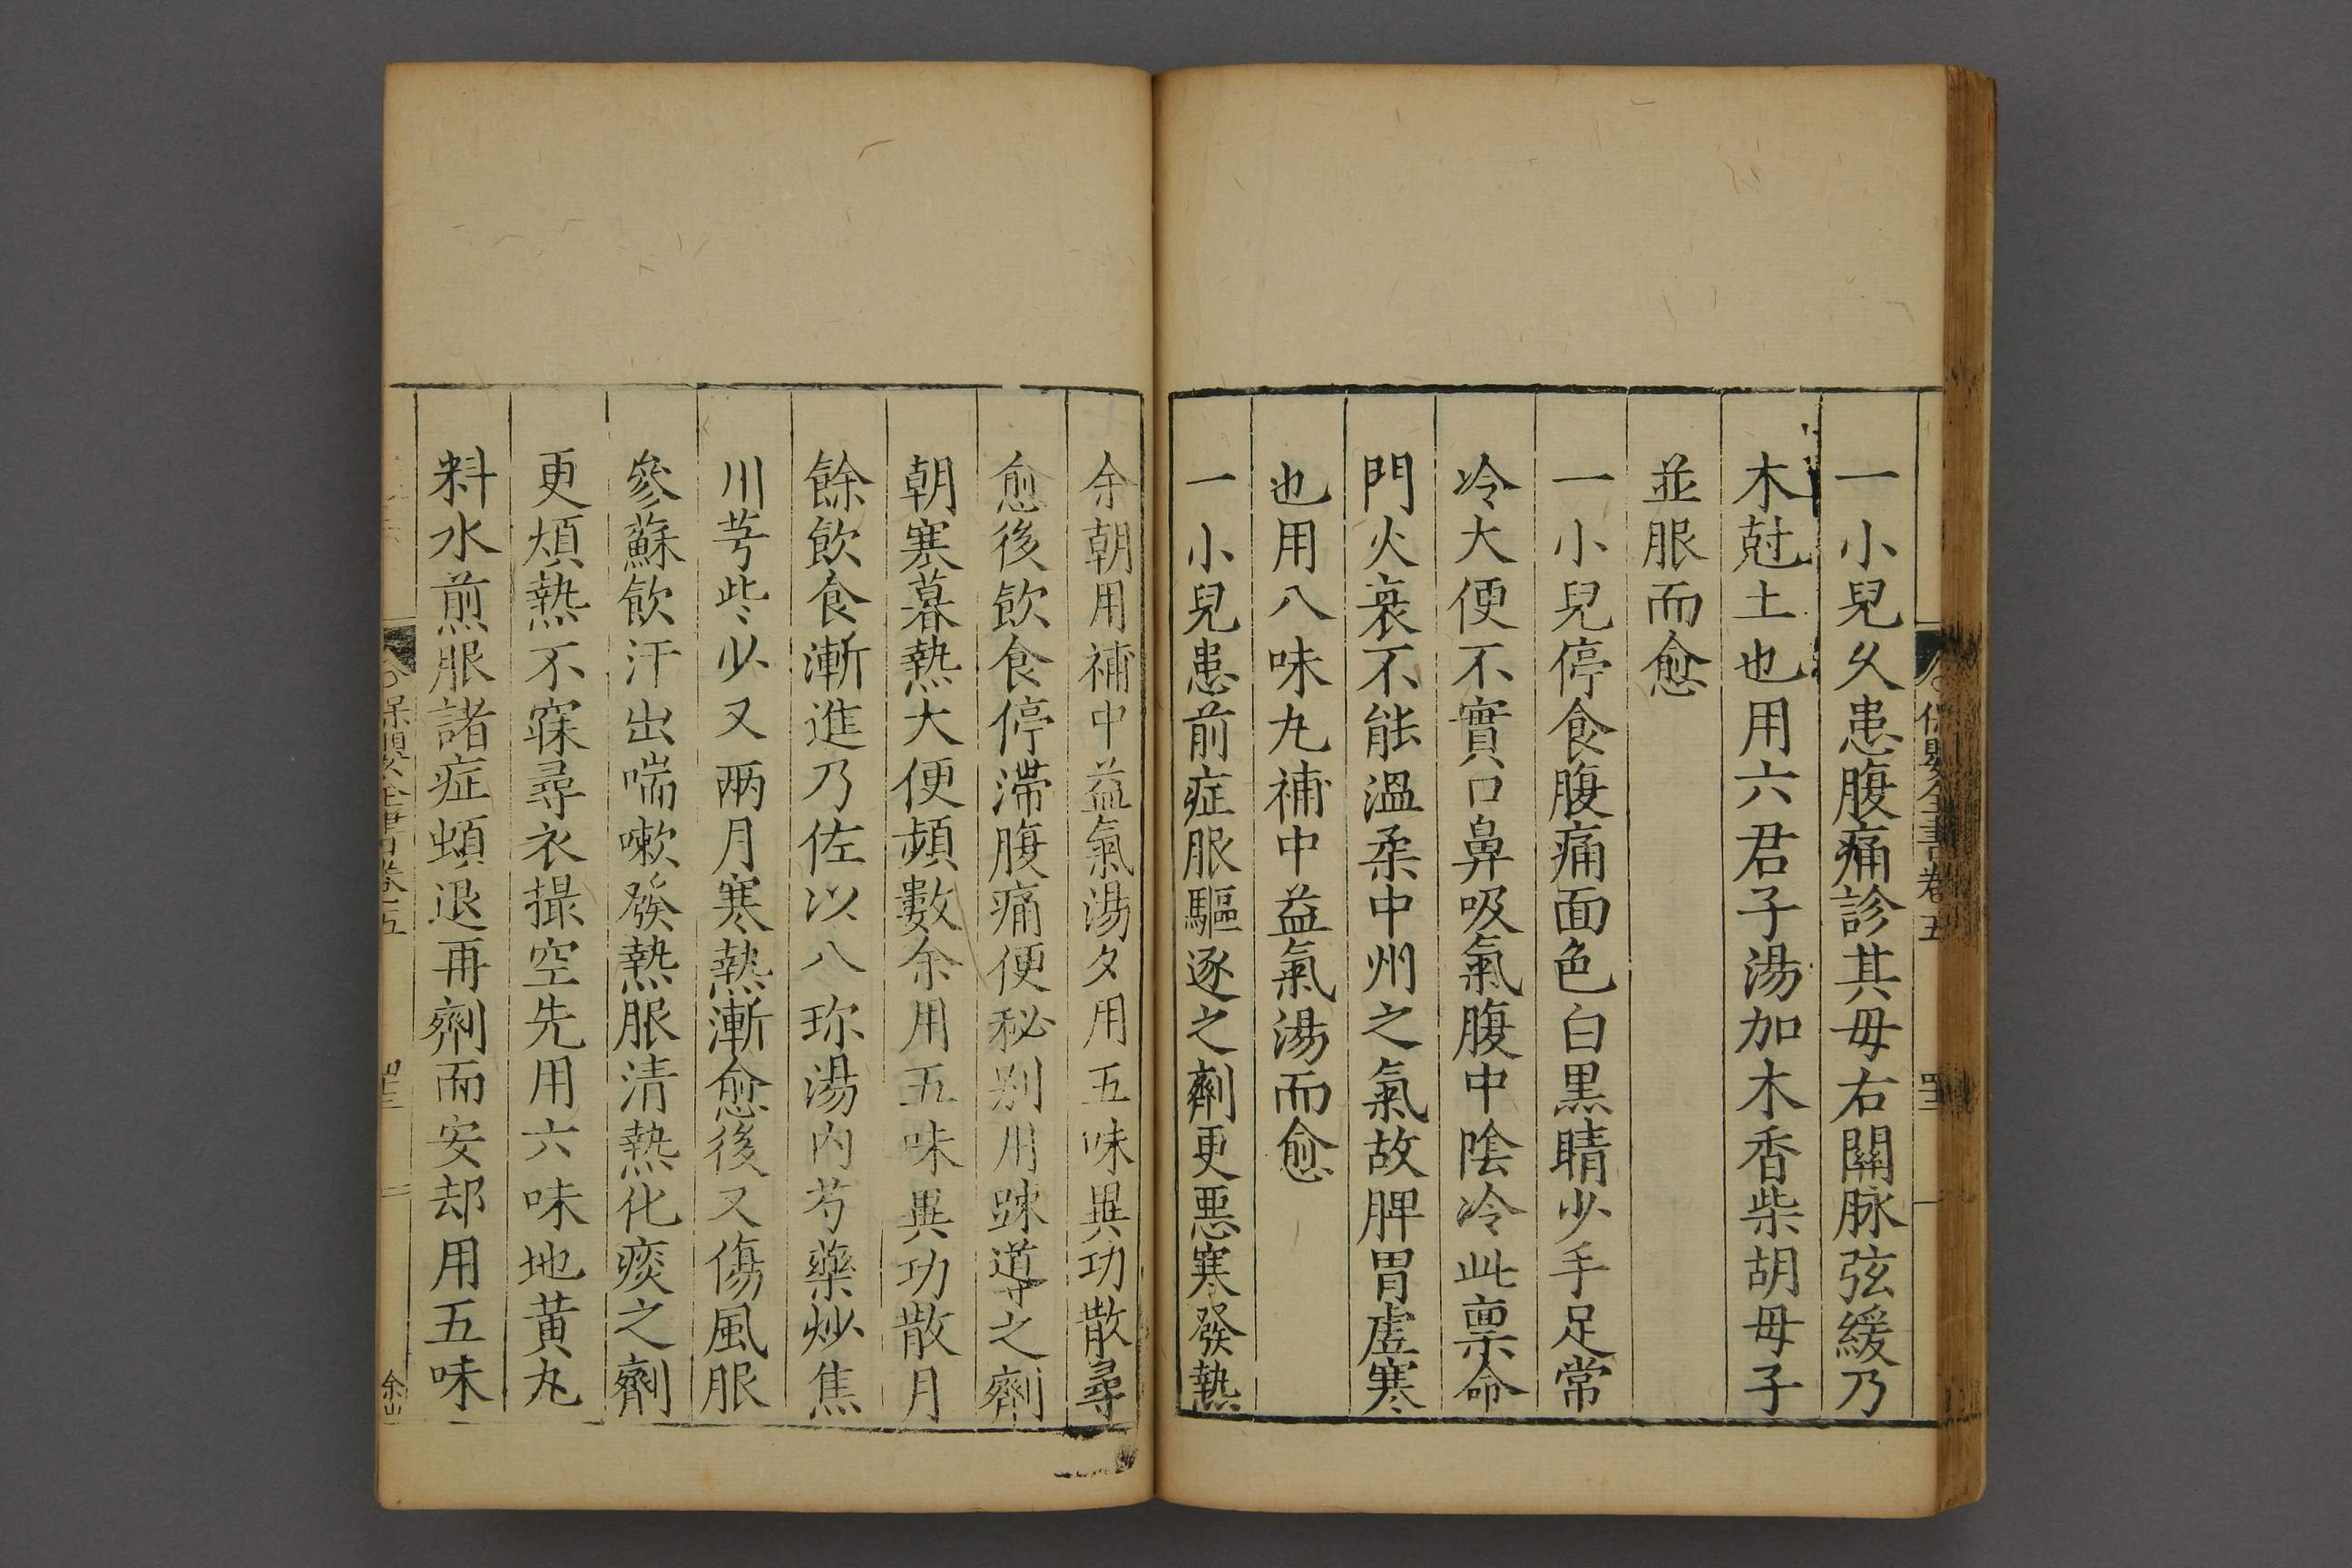 保嬰全書卷五
一小兒久患腹痛診其母右關脉弦緩乃
木尅土也用六君子湯加木香柴胡母子
並服而愈
一小兒停食腹痛面色白黑睛少手足常
冷大便不實口鼻吸氣腹中陰冷此禀命
門火衰不能溫柔中州之氣故脾胃虛寒
也用八味丸補中益氣湯而愈
一小兒患前症服驅逐之劑更惡寒發熱
余朝用補中益氣湯夕用五味異功散尋
愈後飲食停滯腹痛便秘別用踈導之劑
朝寒暮熱大便頻數余用五味異功散月
餘飲食漸進乃佐以八珎湯內芍藥炒焦
川芎些〻少又兩月寒熱漸愈後又傷風服
參蘇飲汗出喘嗽發熱服清熱化痰之劑
更煩熱不寐尋衣撮空先用六味地黃丸
料水煎服諸症頓退再劑而安却用五味
保嬰全書卷五